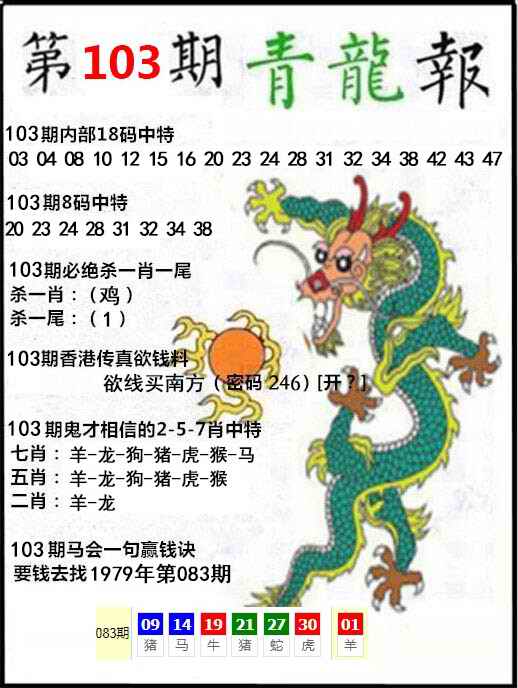 第103期青龍報
103期内部18码中特
03 04 08 10 12 15 16 20 23 24 28 31 32 34 38 42 43 47
103期8码中特
20 23 24 28 31 32 34 38
103期必绝杀一肖一尾
杀一肖：（鸡）
杀一尾：（1）
103期香港传真欲钱料
欲线买南方（密码 246）[开？]
103期鬼才相信的2-5-7肖中特
七肖：羊-龙-狗-猪-虎-猴-马
五肖：羊-龙-狗-猪-虎-猴
二肖：羊-龙
103期马会一句赢钱诀
要钱去找1979年第083期
083期 09 14 19 21 27 30 01
猪 马 牛 猪 蛇 虎 羊